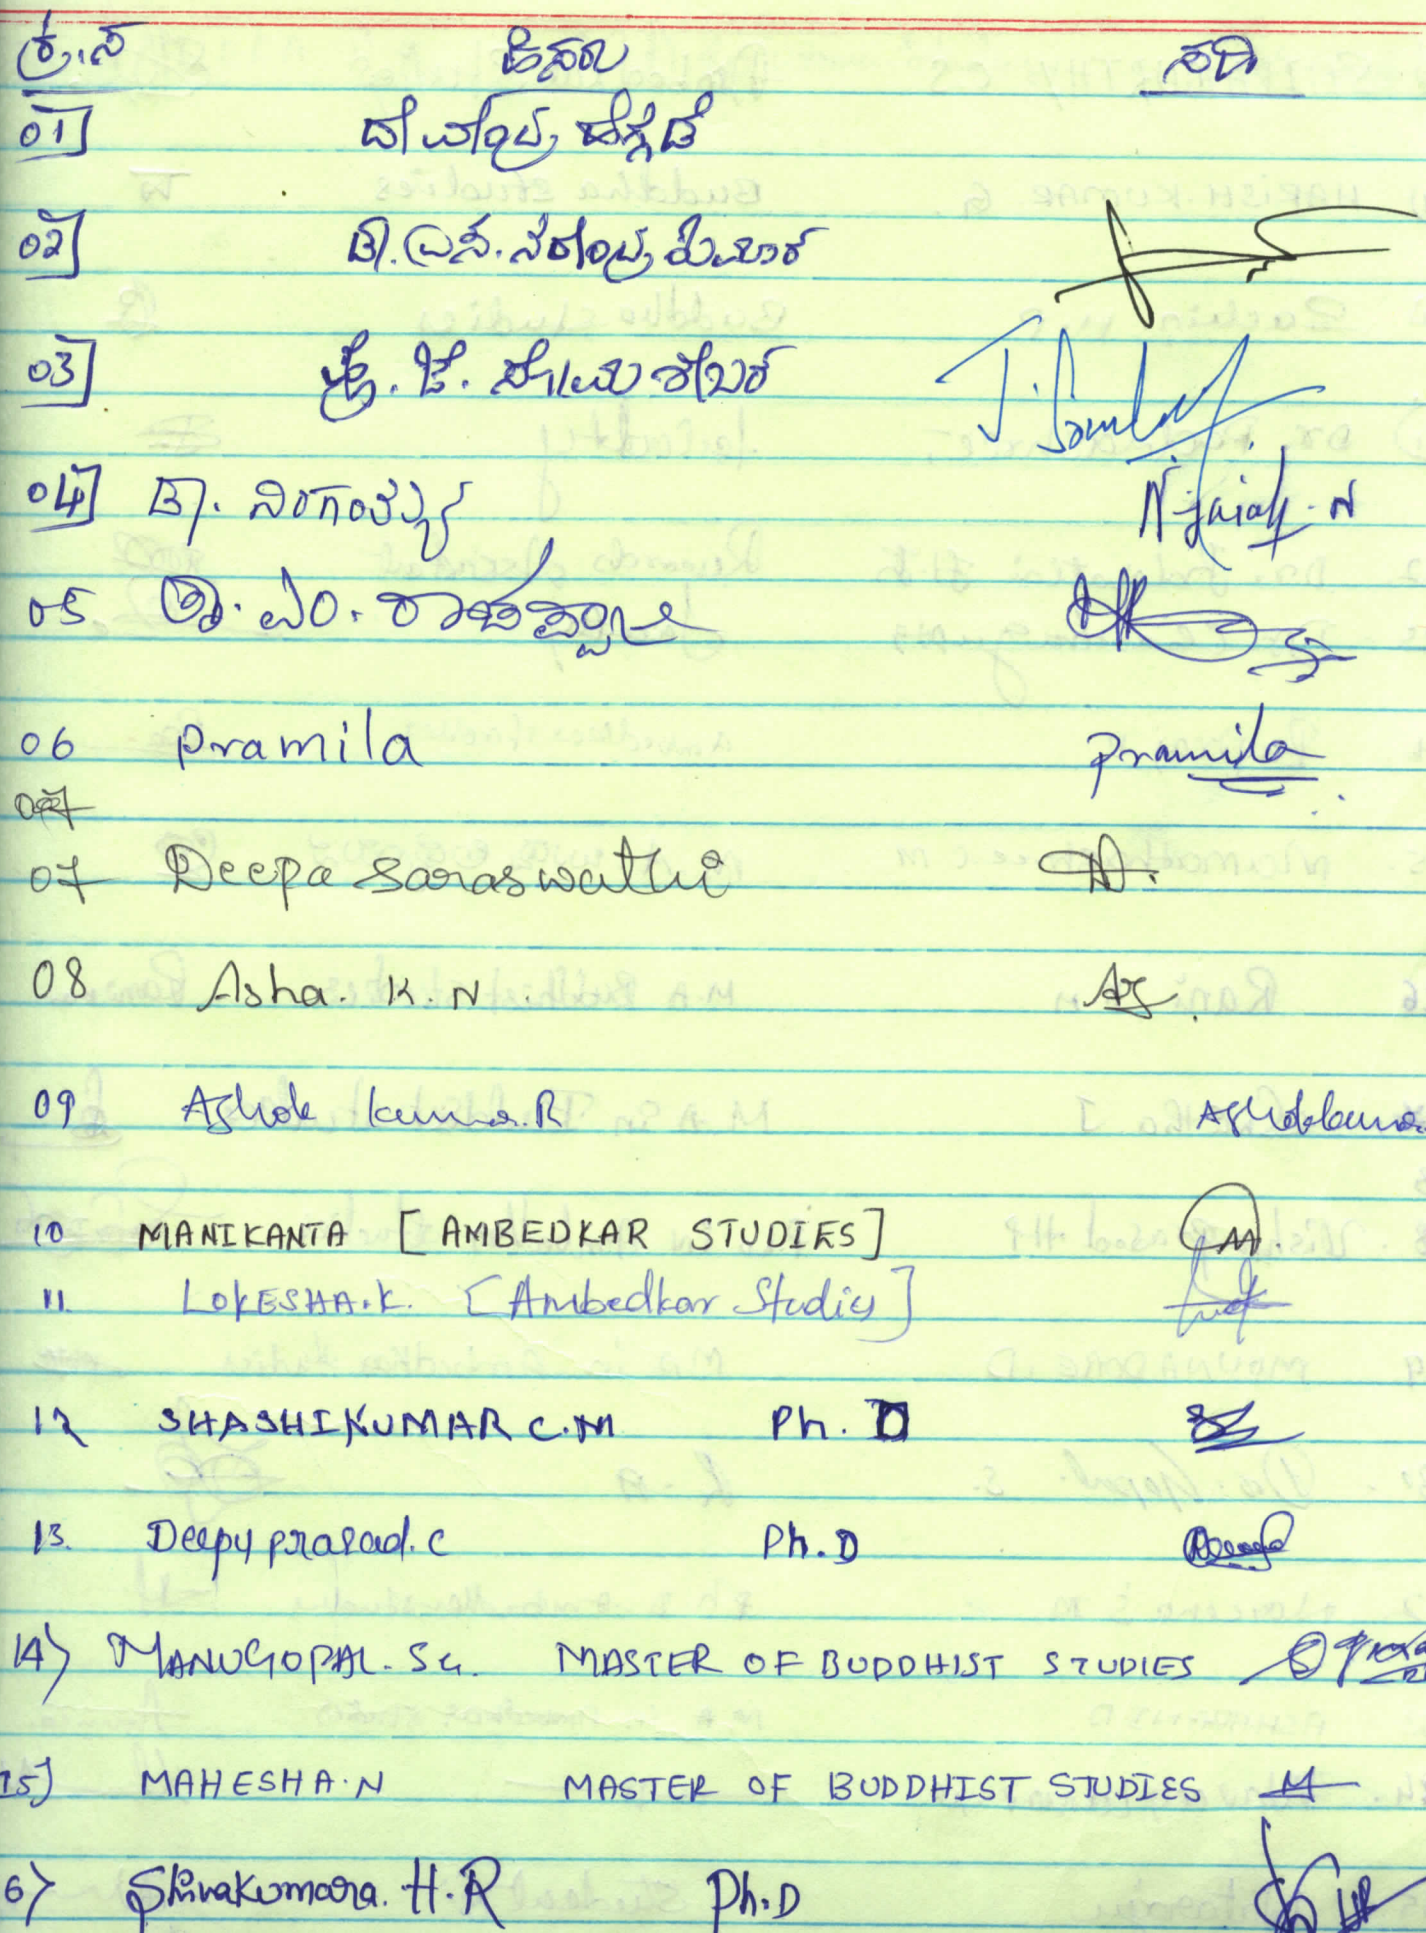 ಕ್ರ.ಸ ಹೆಸರು ಸಹಿ
01] ದೇವೇಂದ್ರ ಹೆಗ್ಗಡೆ
02] ಡಾ. ಎಸ್. ನರೇಂದ್ರ ಕುಮಾರ್
03] ಪ್ರೊ. ಜೆ. ಸೋಮಶೇಖರ್ J. Somashekar
04] ಡಾ. N. Jaiah. N
05 ಡಾ. ಎಂ.
06 Pramila Pramila
07
07 Deepa Saraswathi
08 Asha. K. N.
09 Ashok kumar. R Ashokkumar
10 MANIKANTA [AMBEDKAR STUDIES]
11. LOKESHA.K. [Ambedkar Studies]
12 SHASHIKUMAR C.M Ph. D
13. Deepu prasad. C Ph. D
14) MANUGOPAL. S.G. MASTER OF BUDDHIST STUDIES
15) MAHESHA.N MASTER OF BUDDHIST STUDIES M
6) Shivakumara. H.R Ph.D